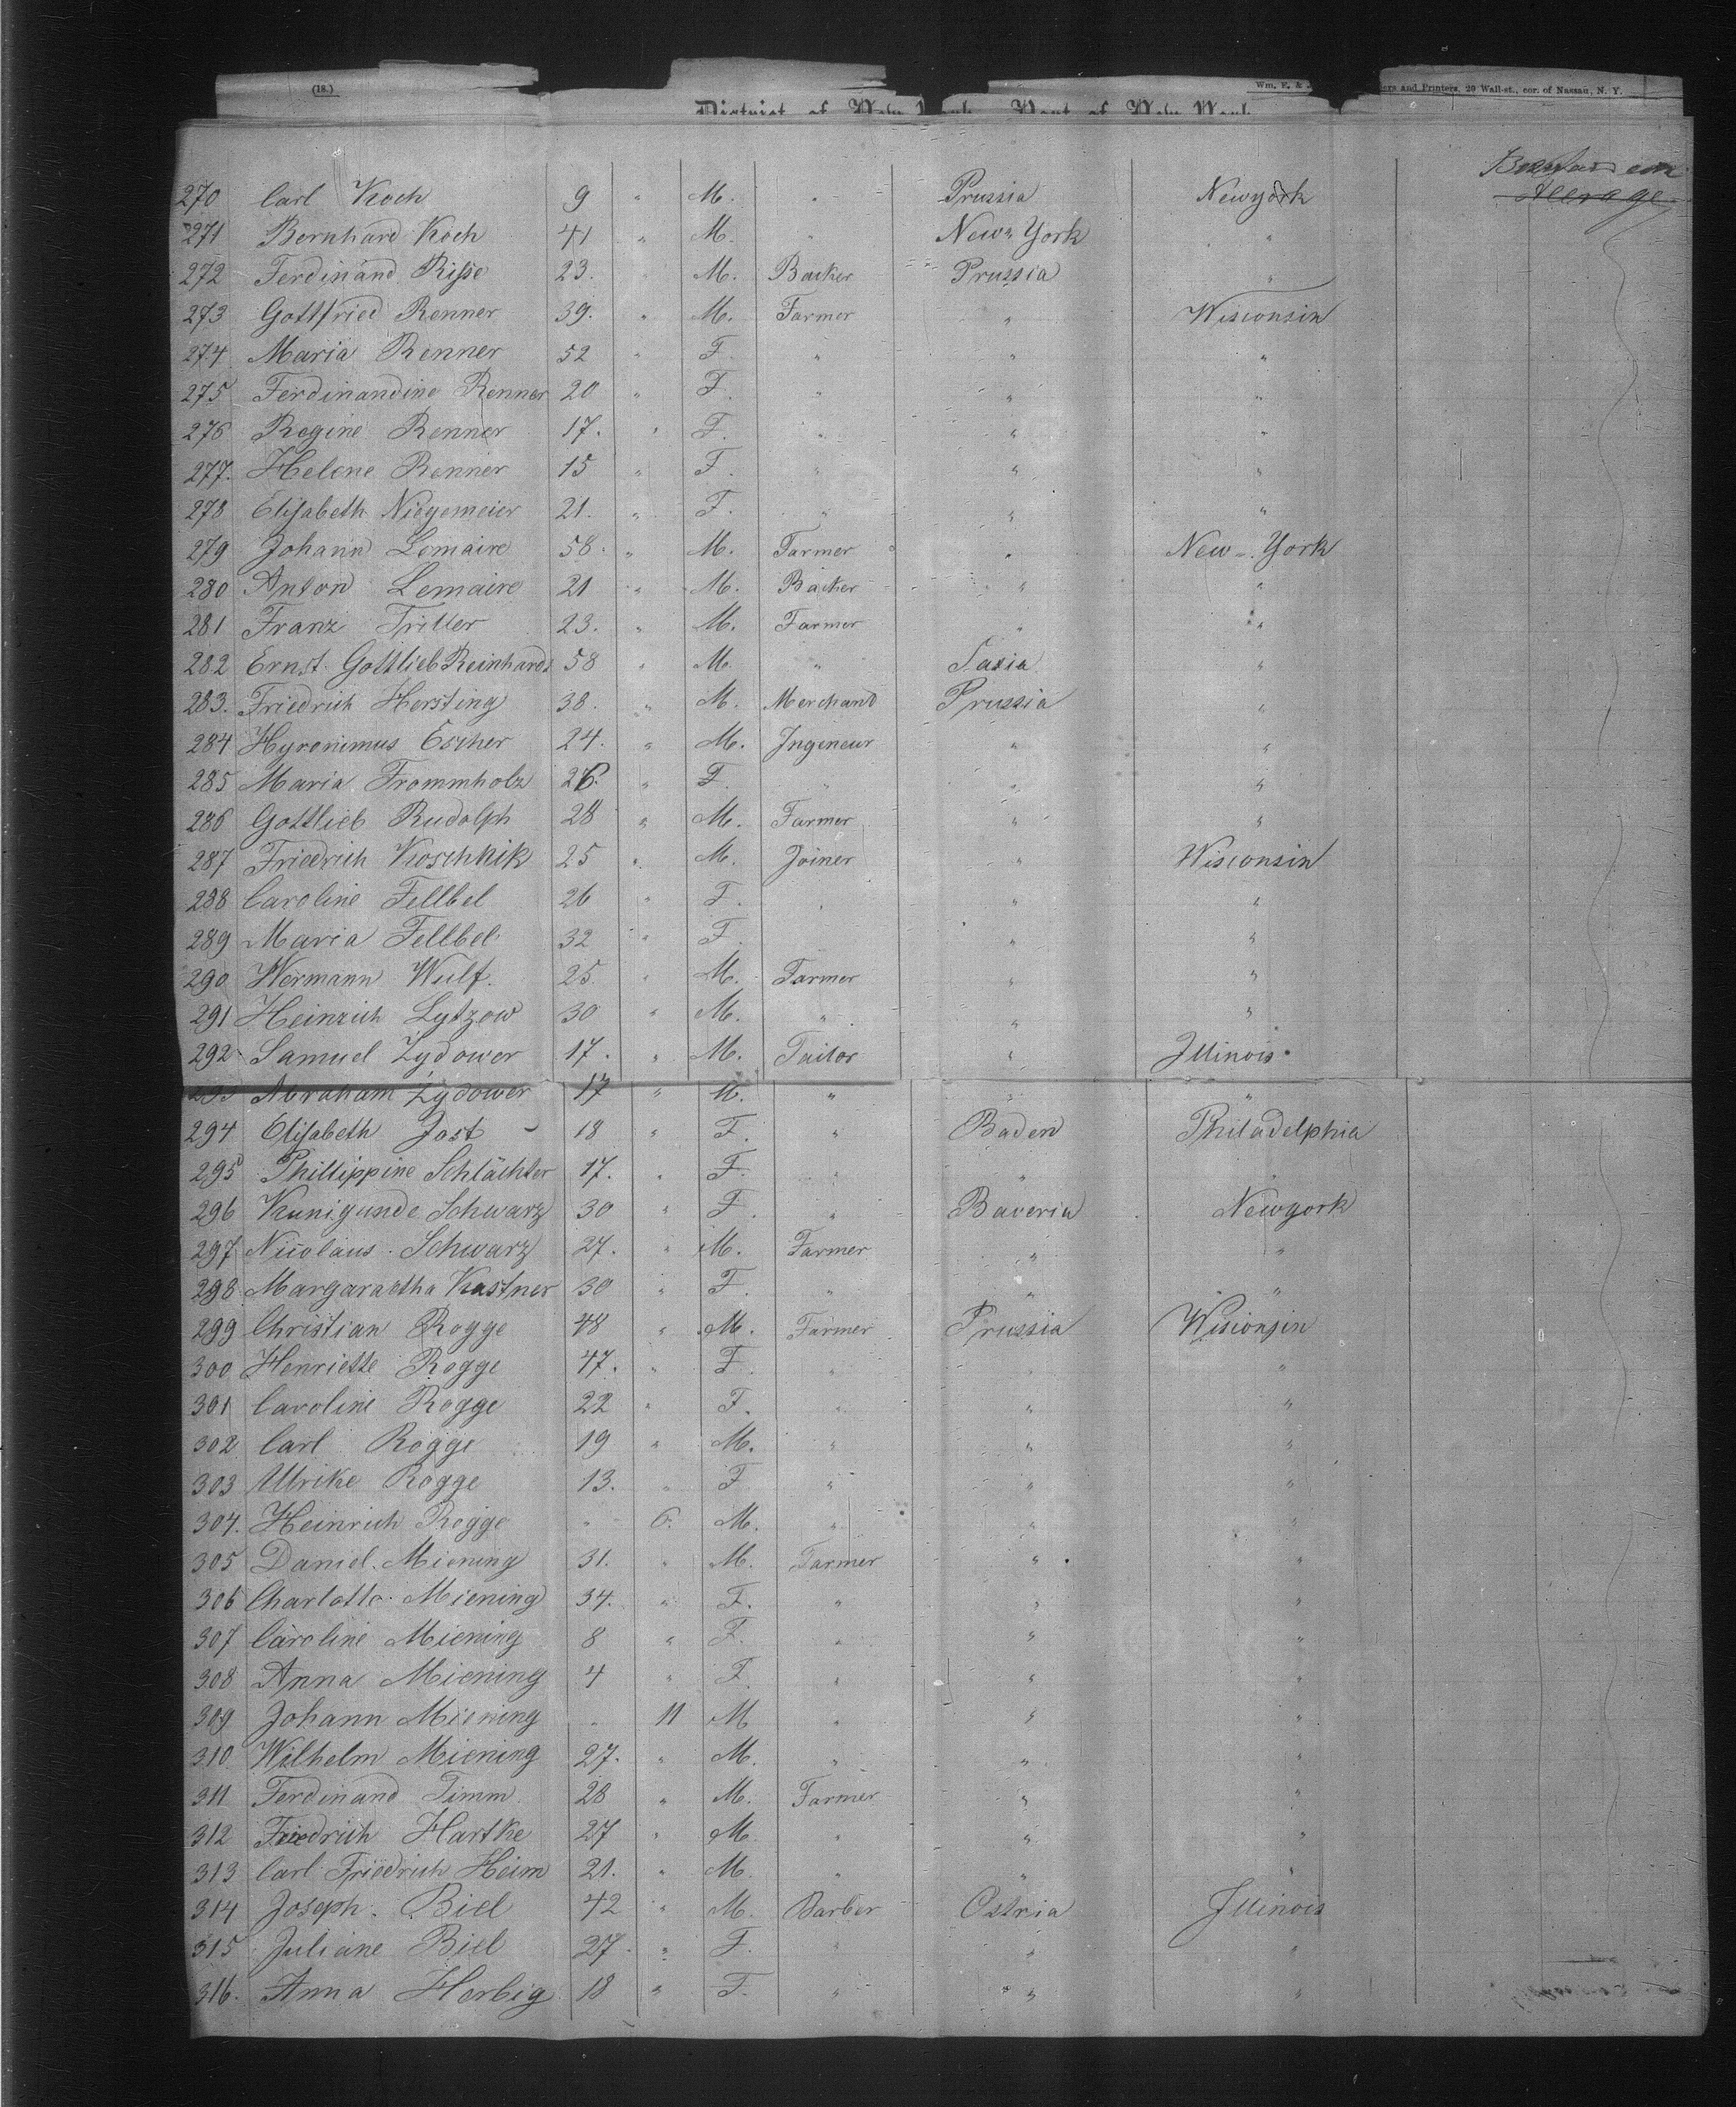 (18.)
District of New York Port of New York
ers and Printers, 20 Wall-st., cor. of Nassau, N. Y.
270 Carl Koch 9 " M. " Prussia Newyork
271 Bernhard Koch 41 " M. " New York "
272 Ferdinand Risse 23. " M. Backer Prussia "
273 Gottfried Renner 39. " M. Farmer " Wisconsin
274 Maria Renner 52 " F. " " "
275 Ferdinandine Renner 20 " F. " " "
276 Regine Renner 17. " F. " " "
277. Helene Renner 15 " F. " " "
278 Elisabeth Niegemeier 21. " F. " " "
279 Johann Lemaire 58. " M. Farmer " New York
280 Anton Lemaire 21 " M. Backer " "
281 Franz Tritter 23. " M. Farmer " "
282 Ernst Gottlieb Reinhards 58 " M. " Saxia "
283. Friedrich Hersting 38. " M. Merchand Prussia "
284 Hyronimus Escher 24. " M. Ingenieur " "
285 Maria Frommholz 26. " F. " " "
286 Gottlieb Rudolph 28 " M. Farmer " "
287 Friedrich Koschkik 25 " M. Joiner " Wisconsin
288 Caroline Fellbel 26 " F. " " "
289 Maria Fellbel 32 " F. " " "
290 Hermann Wulf. 25 " M. Farmer " "
291 Heinrich Lytzow 30 " M. " " "
292 Samuel Zydower 17. " M. Tailor " Illinois
293 Abraham Zydower 17 " M. " " "
294 Elisabeth Jost 18 " F. " Baden Philadelphia
295 Phillippine Schlächter 17. " F. " " "
296 Kunigunde Schwarz 30 " F. " Baveria Newyork
297 Nicolaus Schwarz 27. " M. Farmer " "
298 Margaraetha Kastner 30 " F. " " "
299 Christian Rogge 48 " M. Farmer Prussia Wisconsin
300 Henriette Rogge 47. " F. " " "
301 Caroline Rogge 22 " F. " " "
302 Carl Rogge 19 " M. " " "
303 Ulrike Rogge 13. " F " " "
304. Heinrich Rogge " 6. M. " " "
305 Daniel Miening 31. " M. Farmer " "
306 Charlotte Miening 34. " F. " " "
307 Caroline Miening 8 " F. " " "
308 Anna Miening 4 " F. " " "
309 Johann Miening " 11 M " " "
310 Wilhelm Miening 27. " M. " " "
311 Ferdinand Timm 28 " M. Farmer " "
312 Friedrich Hartke 27 " M. " " "
313 Carl Friedrich Heim 21. " M. " " "
314 Joseph Biel 42 " M. Barber Ostria Illinois
315 Juliane Biel 27. " F. " " "
316. Anna Herbig 18 " F. " " "